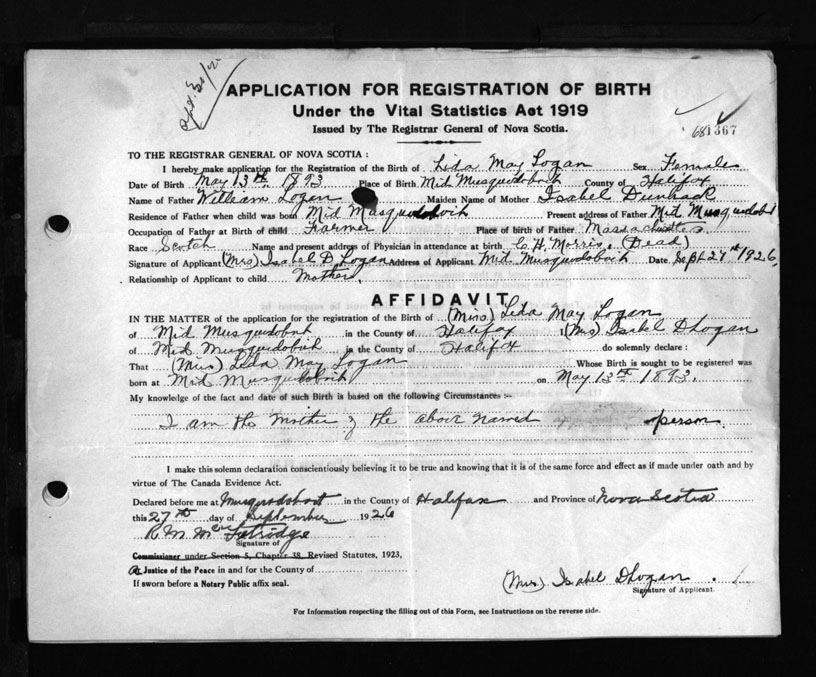 Sept. 30/26
APPLICATION FOR REGISTRATION OF BIRTH
Under the Vital Statistics Act 1919
Issued by The Registrar General of Nova Scotia.
681367
TO THE REGISTRAR GENERAL OF NOVA SCOTIA :
I hereby make application for the Registration of the Birth of Lida May Logan Sex Female
Date of Birth May 13th 1893 Place of Birth Mid Musquodoboit County of Halifax
Name of Father William Logan Maiden Name of Mother Isabel
Residence of Father when child was born Mid Musquodoboit Present address of Father Mid Musquodoboit
Occupation of Father at Birth of child Farmer Place of birth of Father Massachusetts
Race Scotch Name and present address of Physician in attendance at birth C. H. Morris. (Dead)
Signature of Applicant (Mrs) Isabel D Logan Address of Applicant Mid. Musquodoboit Date Sept 27th 1926,
Relationship of Applicant to child Mother.
AFFIDAVIT
IN THE MATTER of the application for registration of the Birth of (Miss) Lida May Logan
of Mid Musquodoboit in the County of Halifax I (Mrs) Isabel D Logan
of Mid. Musquodoboit in the County of Halifax do solemnly declare :
That (Miss) Lida May Logan Whose Birth is sought to be registered was
born at Mid Musquodoboit on May 13th 1893.
My knowledge of the fact and date of such Birth is based on the following Circumstances :-
I am the Mother of the above named person
I make this solemn declaration conscientiously believing it to be true and knowing that it is of the same force and effect as if made under oath and by
virtue of The Canada Evidence Act.
Declared before me at Musquodoboit in the County of Halifax and Province of Nova Scotia
this 27th day of September 1926
R M McFetridge
Signature of
Commissioner under Section 5, Chapter 38, Revised Statutes, 1923,
Justice of the Peace in and for the County of
If sworn before a Notary Public affix seal.
(Mrs) Isabel D Logan
Signature of Applicant.
For Information respecting the filling out of this Form, see Instructions on the reverse side.